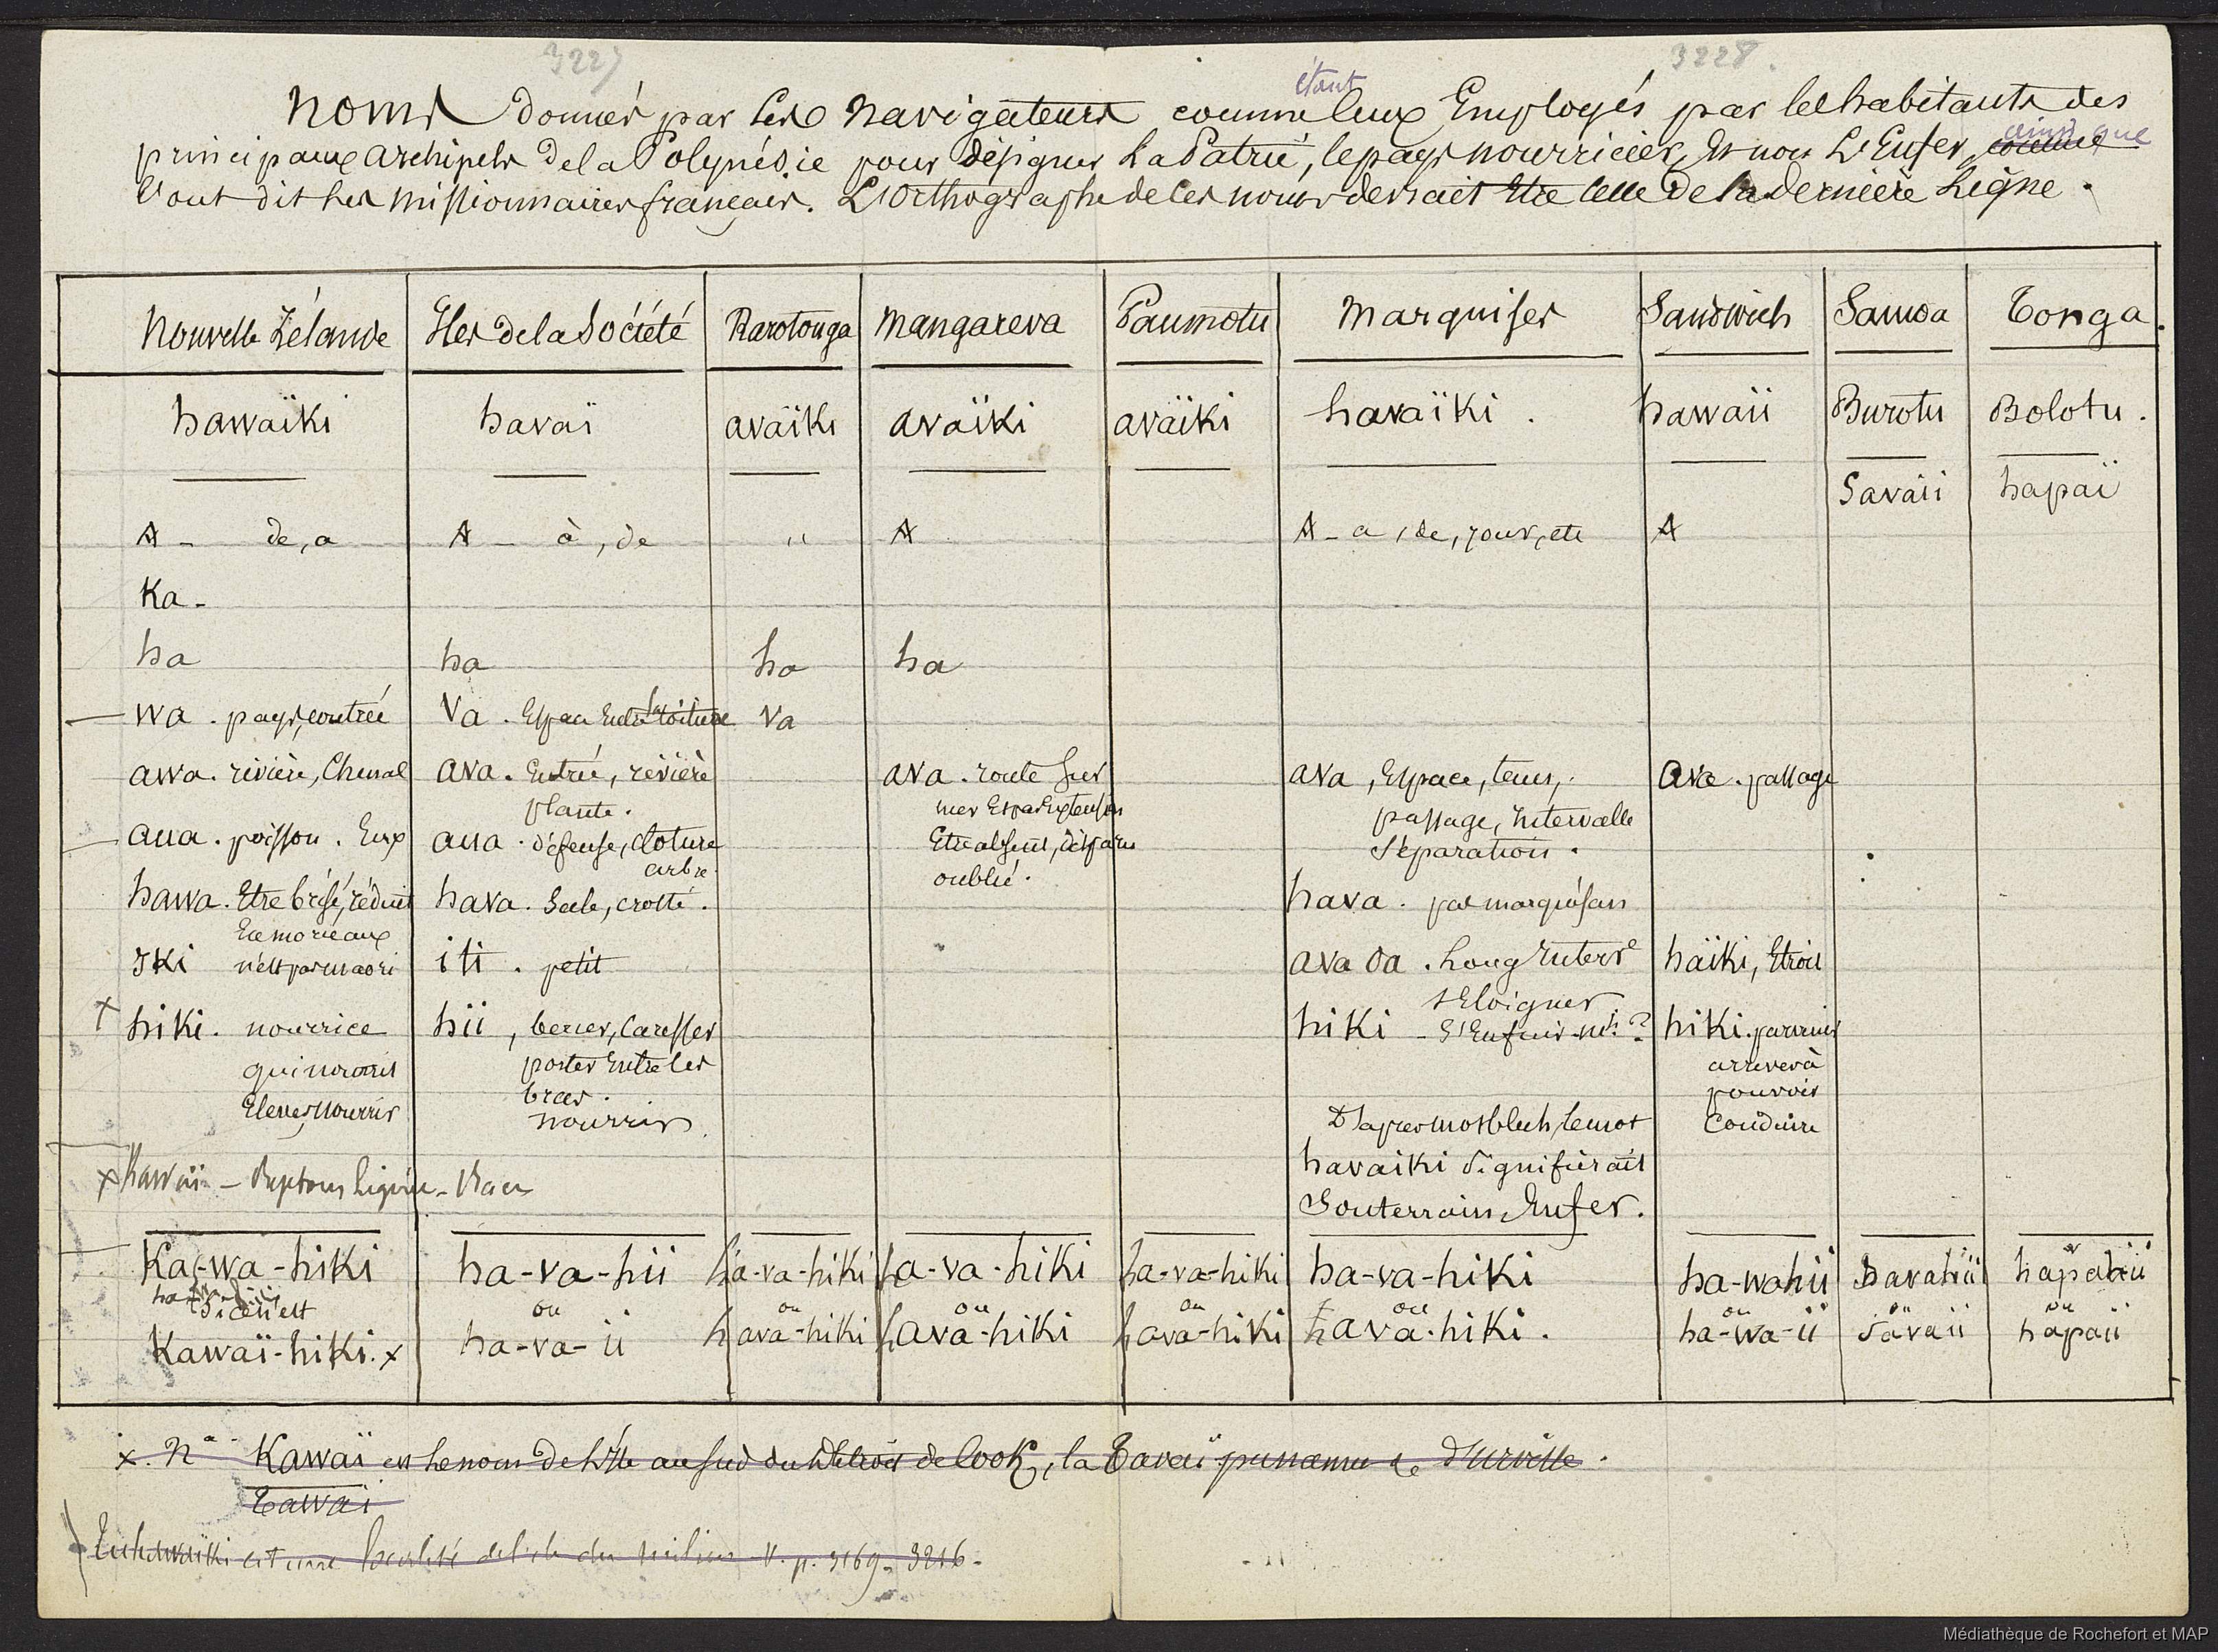 3227 3228.
étant
Noms donnés par les Navigateurs comme ceux Employés par les habitants des
ainsi que
principaux archipels de la Polynésie pour désigner La Patrie, le pays nourricier, Et non L'Enfer, comme
l'ont dit les Missionnaires français. L'Orthographe de ces noms devrait Etre celle de la dernière Ligne.
Nouvelle Zélande Iles de la Société Rarotonga Mangareva Paumotu Marquises Sandwich Samoa Tonga.
hawaïki havaï avaïki avaïki avaïki havaïki. hawaii Burotu Bolotu.
Savaii hapaï
A - de, a A - à, de " A A - a, de, pour, etc A
Ka -
ha ha ha ha
wa. pays, contrée Va. Espace Entre la toiture Va
awa. rivière, Chenal ava. Entrée, rivière ava. route sur ava, Espace, tems, ava. passage
plante. mer passage, intervalle
aua. poisson. aua. défense, cloture Etre absent, disparu Séparation.
arbre. oublié.
hawa. Etre brisé, réduit hava. Sale, crotté. hava. pas marquésan
En morceaux
iki n'est pas maori iti. petit ava oa. Long Interv^e haïki, Etroit
s'Eloigner
hiki. nourrice hii, bercer, caresser hiki - S'Enfuir ? hiki. parvenir
qui nourrit porter Entre les arriver à
bras. pouvoir
Elever, nourrir nourrir D'après Mosblech, le mot Conduire
havaiki signifierait
Souterrain, Enfer.
Ka-wa-hiki ha-va-hii ha-va-hiki ha-va-hiki ha-va-hiki ha-va-hiki ha-wahii Savahii
Si ce n'est ou ou ou ou ou ou ou ou
Kawaï-hiki. x ha-va-ii hava-hiki hava-hiki hava-hiki hava-hiki. ha-wa-ii Savaii hapaii
x. N^a Kawaï est le nom de l'Ile au sud du Détroit de Cook, la Tavaï punamu de d'Urville.
Tawaï
est une localité de l'île du milieu V. p. 3169 - 3216 -
Médiathèque de Rochefort et MAP